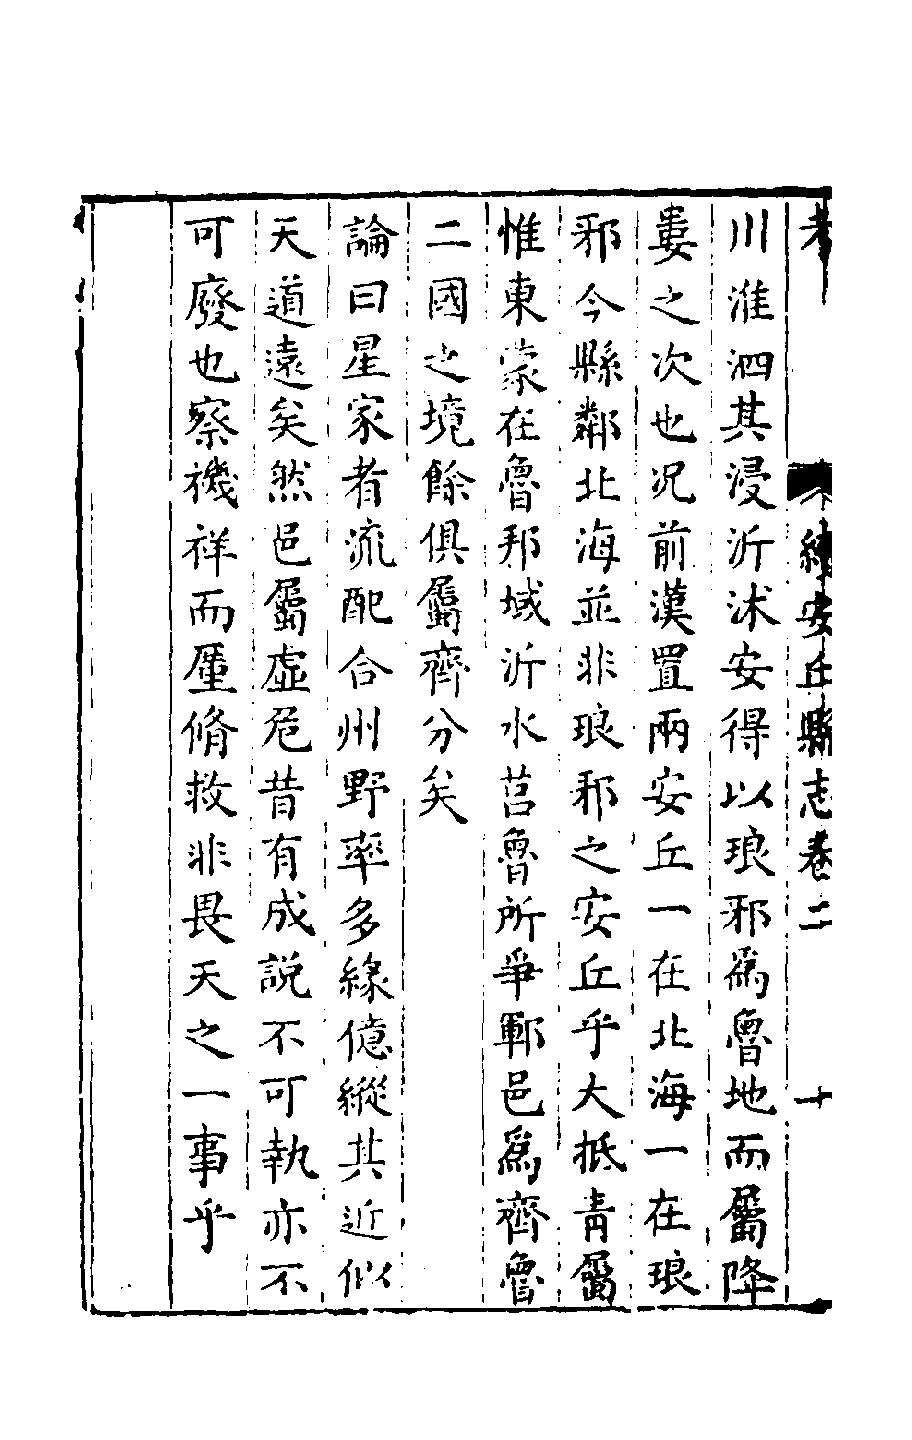 考
續安丘縣志卷二
十
川淮泗其浸沂沭安得以琅邪爲魯地而屬降
婁之次也况前漢置兩安丘一在北海一在琅
邪今縣鄰北海並非琅邪之安丘乎大抵青屬
惟東蒙在魯邦域沂水莒魯所爭鄆邑爲齊魯
二國之境餘俱屬齊分矣
論曰星家者流配合州野率多緣億縱其近似
天道遠矣然邑屬虛危昔有成説不可執亦不
可廢也察禨祥而厪脩救非畏天之一事乎